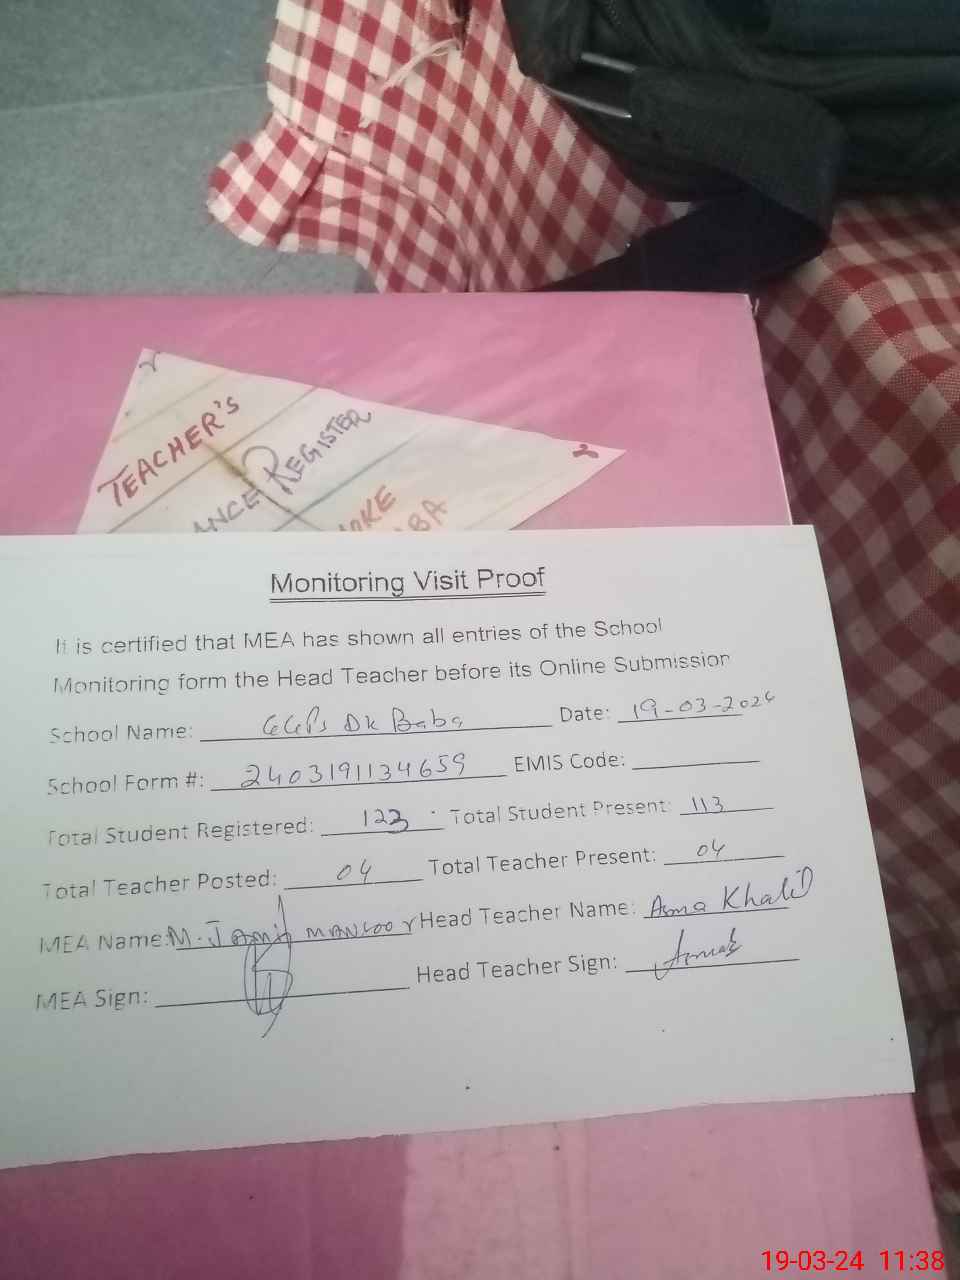 TEACHER'S
ANCE REGISTER
OKE
BA
Monitoring Visit Proof
It is certified that MEA has shown all entries of the School
Monitoring form the Head Teacher before its Online Submission
School Name: GGPS DK Baba Date: 19-03-2024
School Form #: 2403191134659 EMIS Code:
Total Student Registered: 123 Total Student Present: 113
Total Teacher Posted: 04 Total Teacher Present: 04
MEA Name: M. JAMIL MANSOOR Head Teacher Name: Asma Khalid
MEA Sign: Head Teacher Sign:
19-03-24 11:38